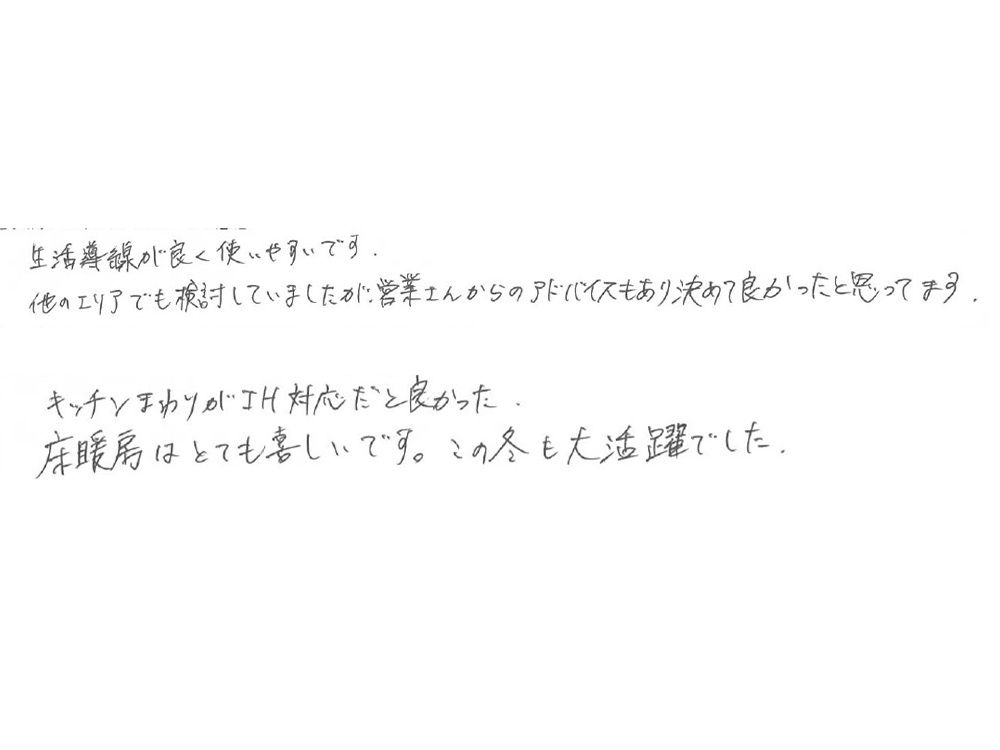 生活導線が良く使いやすいです.
他のエリアでも検討していましたが、営業さんからのアドバイスもあり決めて良かったと思ってます.
キッチンまわりがIH対応だと良かった.
床暖房はとても喜しいです。この冬も大活躍でした.